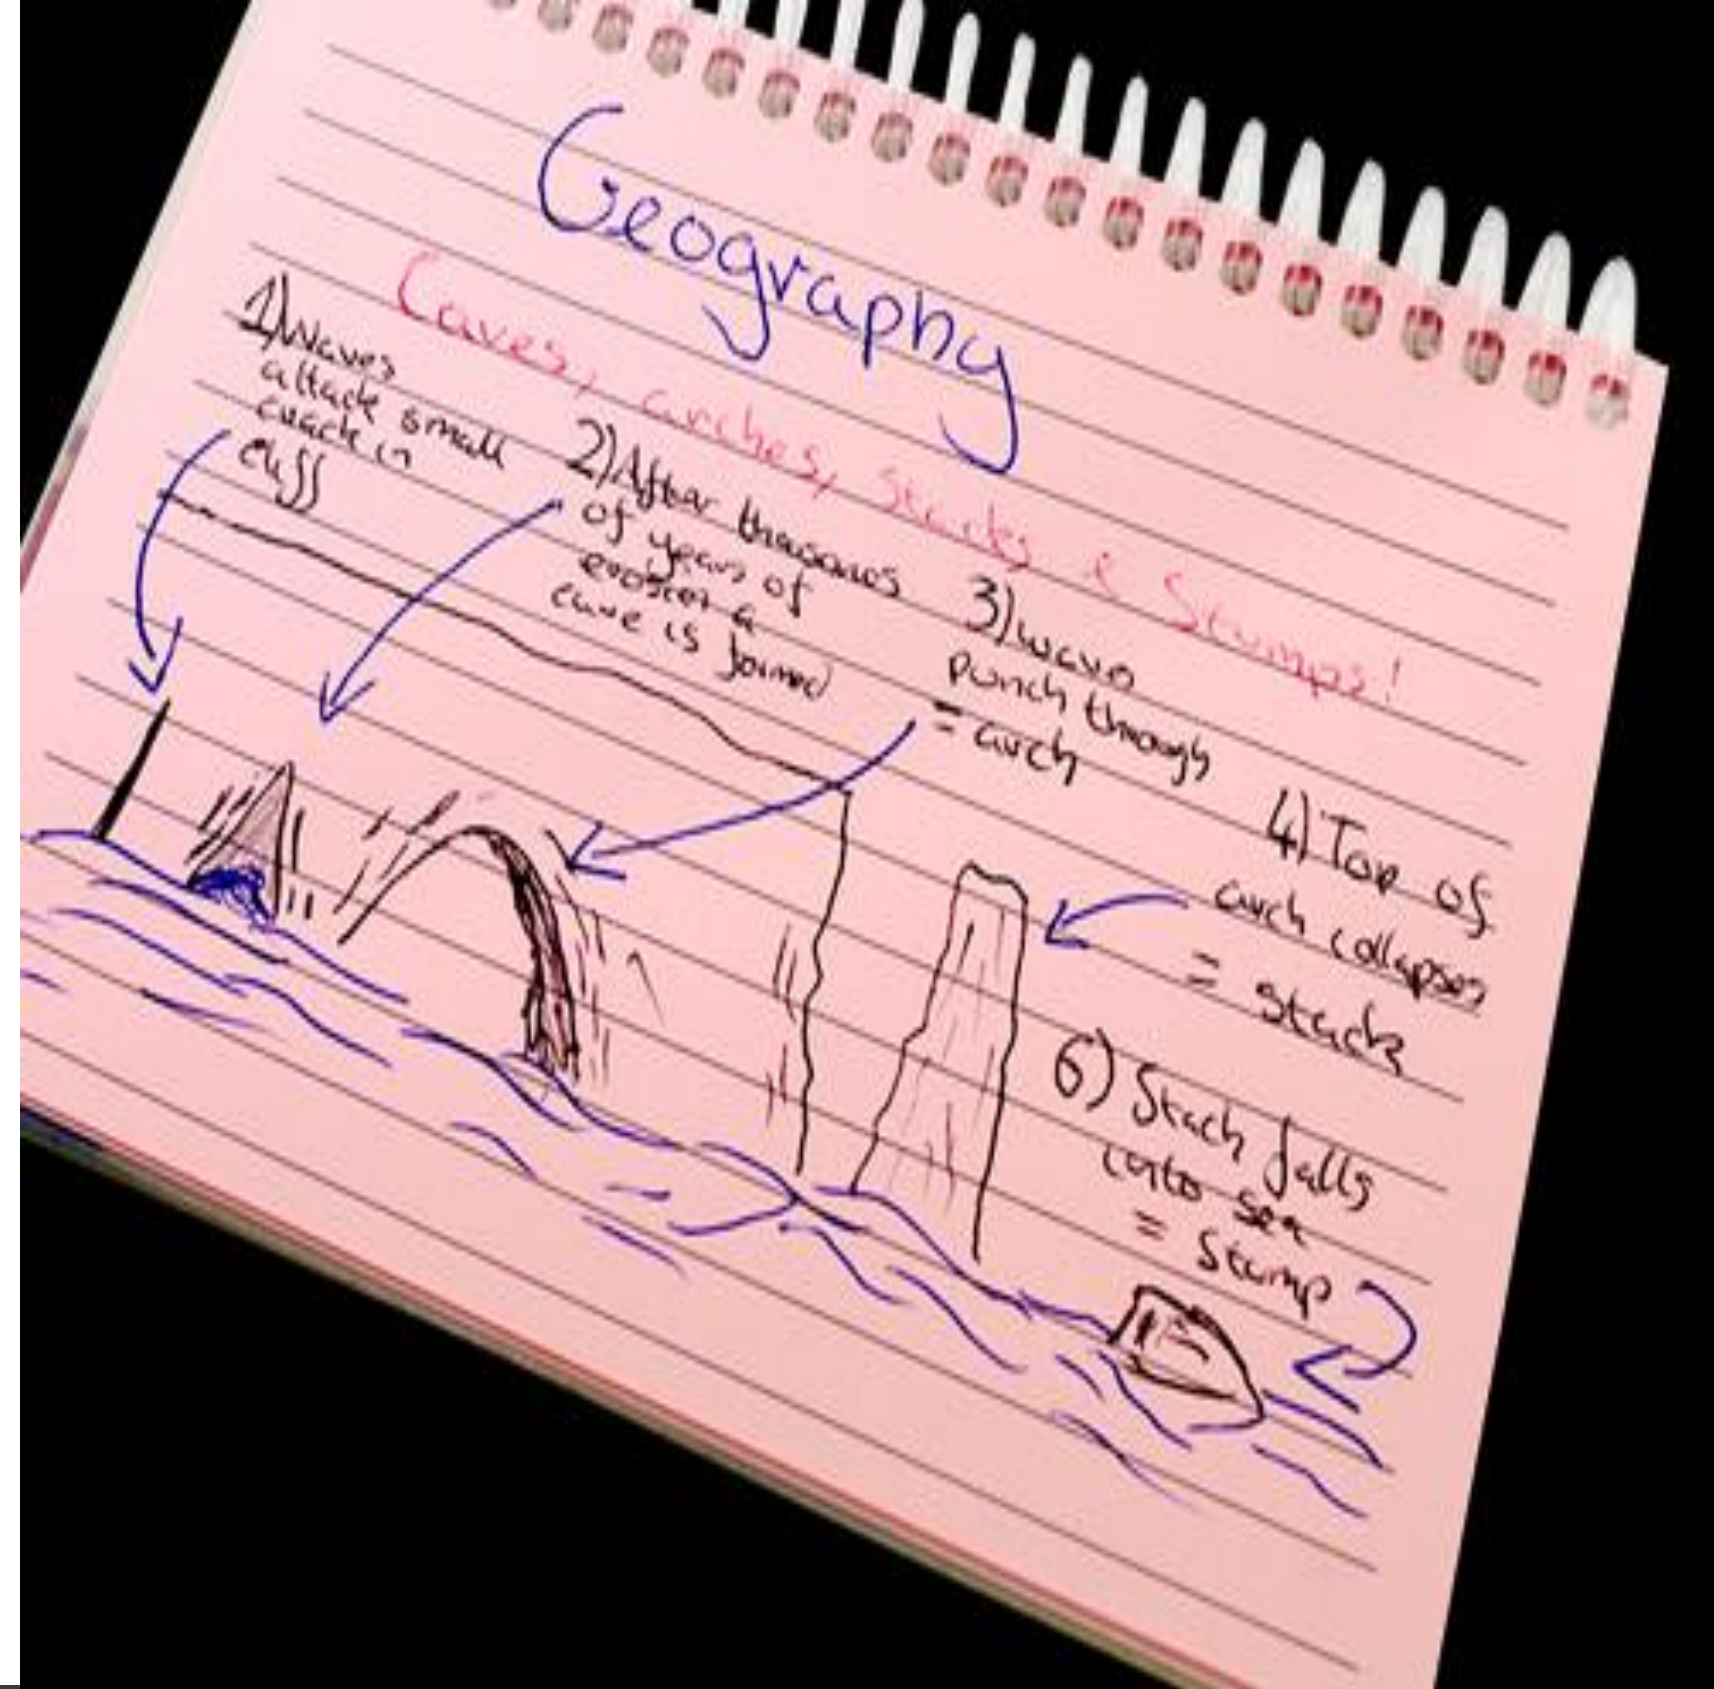 Geography
Caves, arches, stacks & Stumps!
1) Waves
attack small
crack in
cliff
2) After thousands
of years of
erosion a
cave is formed
3) waves
punch through
= arch
4) Top of
arch collapses
= stack
6) Stack falls
into sea
= Stump